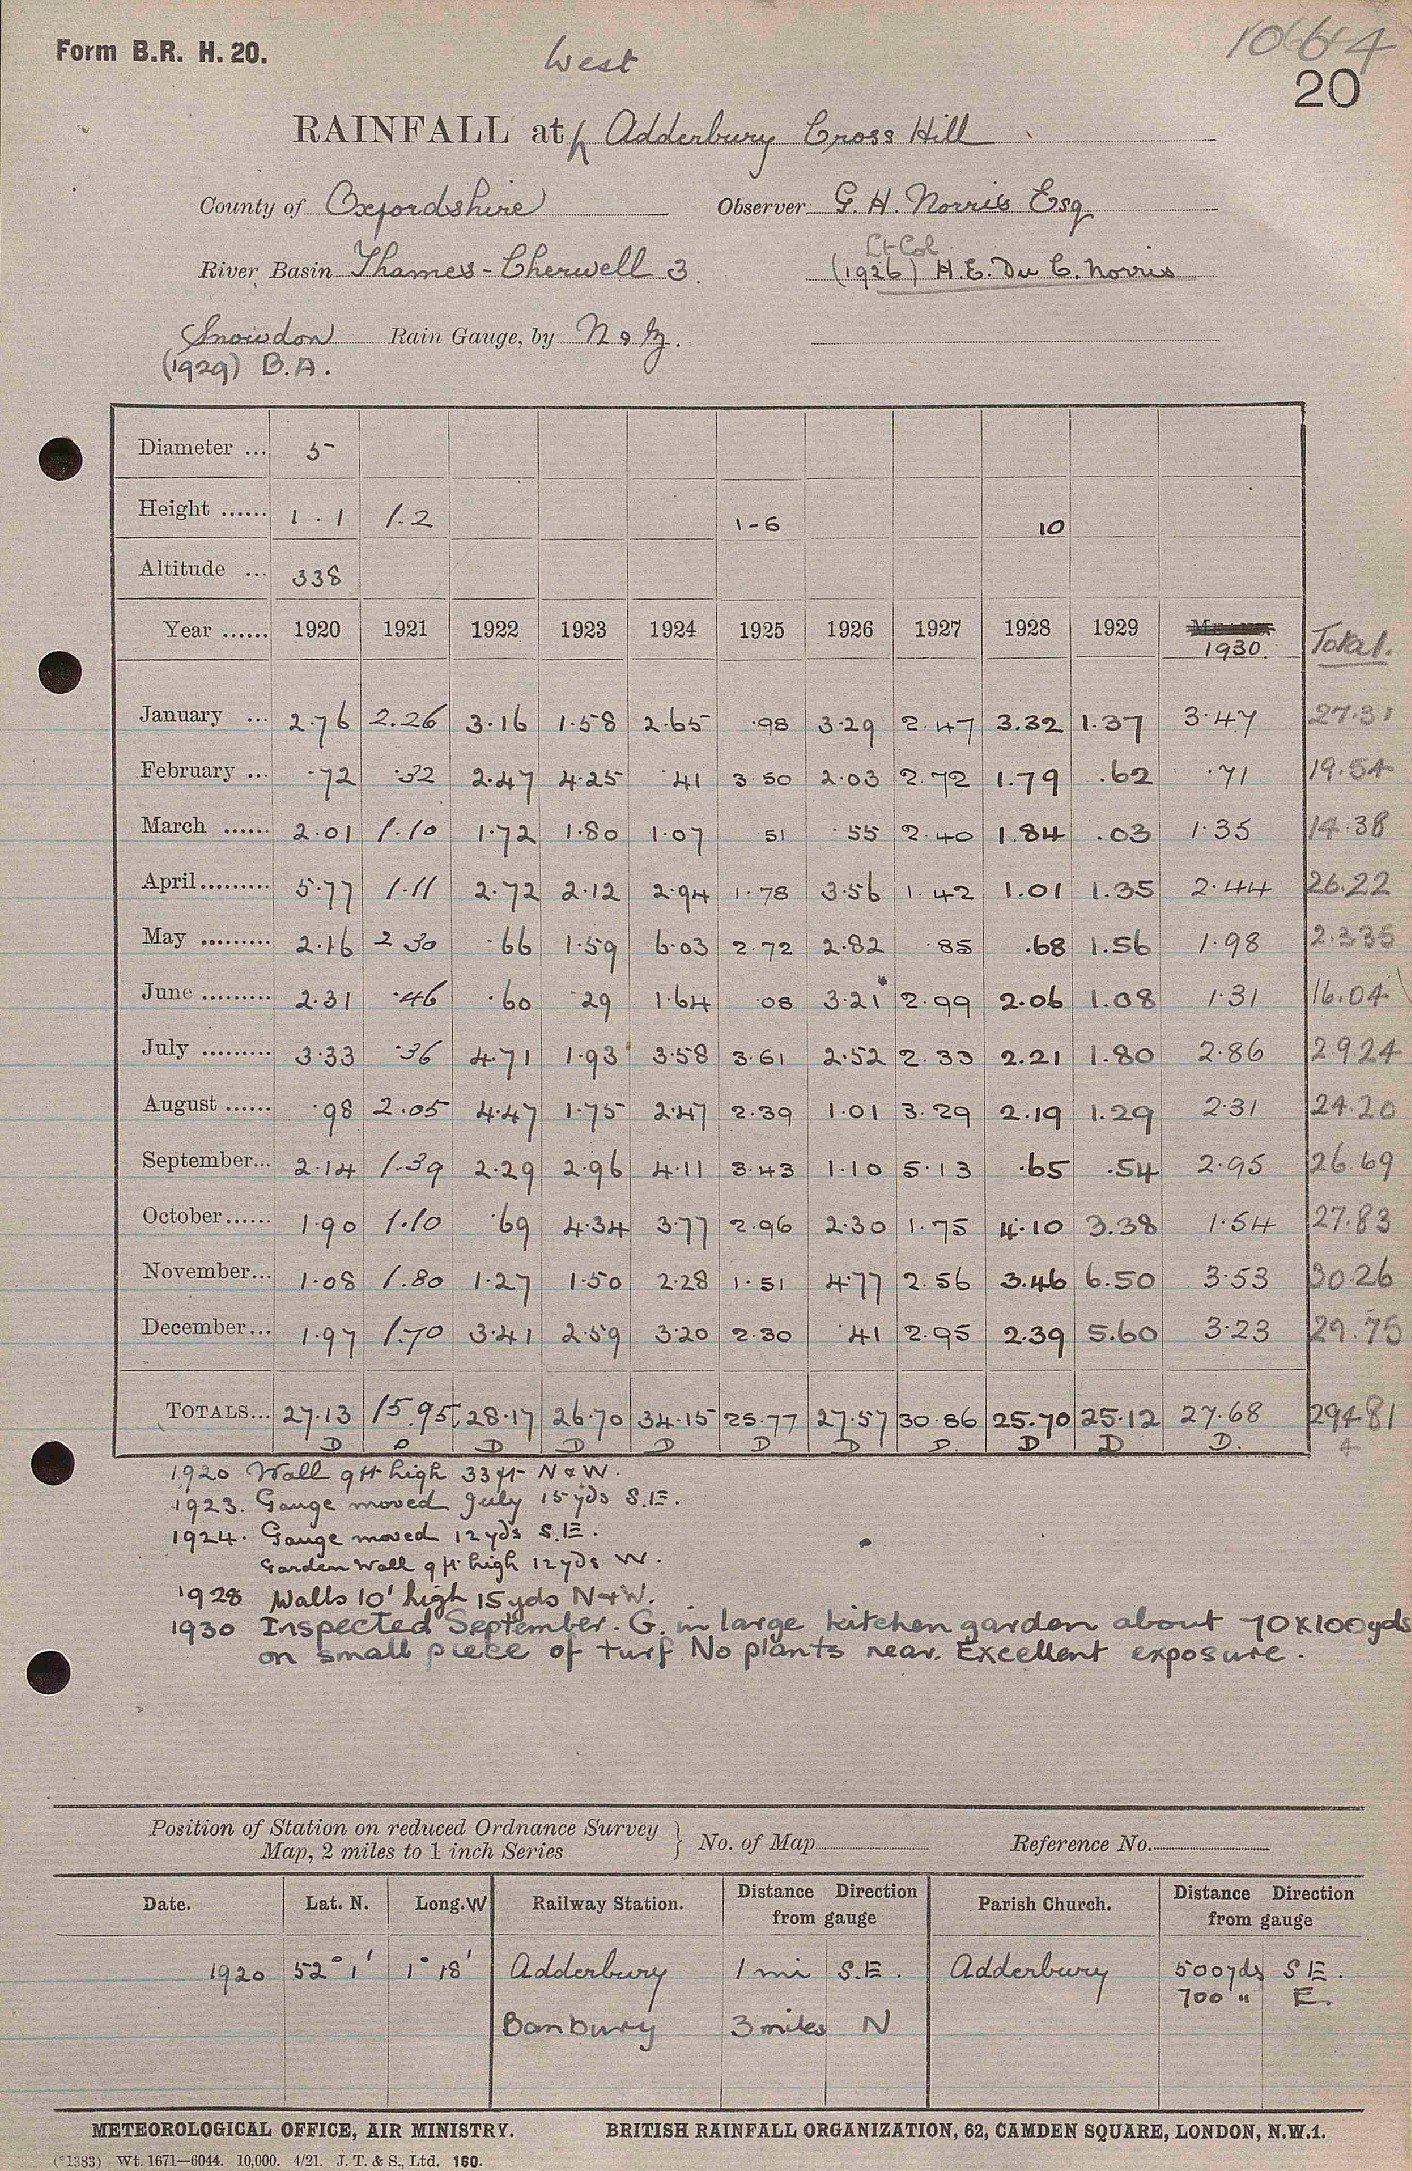 Form B.R. H. 20.
West
1064
20
RAINFALL at Adderbury Cross Hill
County of Oxfordshire Observer G. H. Norris Esq
Lt Col
River Basin Thames - Cherwell 3. (1926) H.E. Du C. Norris
Snowdon Rain Gauge, by N & Z.
(1929) B.A.
Diameter ... 5
Height ...... 1.1 1.2 1-6 10
Altitude ... 338
Year ...... 1920 1921 1922 1923 1924 1925 1926 1927 1928 1929 1930. Total.
January ... 2.76 2.26 3.16 1.58 2.65 .98 3.29 2.47 3.32 1.37 3.47 27.31
February ... .72 .32 2.47 4.25 .41 3.50 2.03 2.72 1.79 .62 .71 19.54
March ...... 2.01 1.10 1.72 1.80 1.07 51 .55 2.40 1.84 .03 1.35 14.38
April......... 5.77 1.11 2.72 2.12 2.94 1.78 3.56 1.42 1.01 1.35 2.44 26.22
May ......... 2.16 2 30 .66 1.59 6.03 2.72 2.82 .85 .68 1.56 1.98 23.35
June ......... 2.31 .46 .60 .29 1.64 .08 3.21 2.99 2.06 1.08 1.31 16.04
July ......... 3.33 .36 4.71 1.93 3.58 3.61 2.52 2.33 2.21 1.80 2.86 29.24
August ...... .98 2.05 4.47 1.75 2.47 2.39 1.01 3.29 2.19 1.29 2.31 24.20
September... 2.14 1.39 2.29 2.96 4.11 3.43 1.10 5.13 .65 .54 2.95 26.69
October...... 1.90 1.10 .69 4.34 3.77 2.96 2.30 1.75 4.10 3.38 1.54 27.83
November... 1.08 1.80 1.27 1.50 2.28 1.51 4.77 2.56 3.46 6.50 3.53 30.26
December... 1.97 1.70 3.41 2.59 3.20 2.30 .41 2.95 2.39 5.60 3.23 29.75
TOTALS... 27.13 15.95 28.17 26.70 34.15 25.77 27.57 30.86 25.70 25.12 27.68 294.81
D D D D D D D D. D D D. 4
1920 Wall 9 ft high 33 ft N & W.
1923. Gauge moved July 15 yds S.E.
1924. Gauge moved 12 yds S.E.
Garden Wall 9 ft high 12 yds W.
1928 Walls 10' high 15 yds N + W.
1930 Inspected September. G. in large kitchen garden about 70 x 100 yds
on small piece of turf. No plants near. Excellent exposure.
Position of Station on reduced Ordnance Survey
Map, 2 miles to 1 inch Series } No. of Map Reference No.
Date. Lat. N. Long. W Railway Station. Distance Direction from gauge Parish Church. Distance Direction from gauge
1920 52° 1' 1° 18' Adderbury 1 mi S.E. Adderbury 500 yds S E.
700 " E.
Banbury 3 miles N
METEOROLOGICAL OFFICE, AIR MINISTRY. BRITISH RAINFALL ORGANIZATION, 62, CAMDEN SQUARE, LONDON, N.W.1.
(*1383) Wt. 1671—6044. 10,000. 4/21. J. T. & S., Ltd. 160.